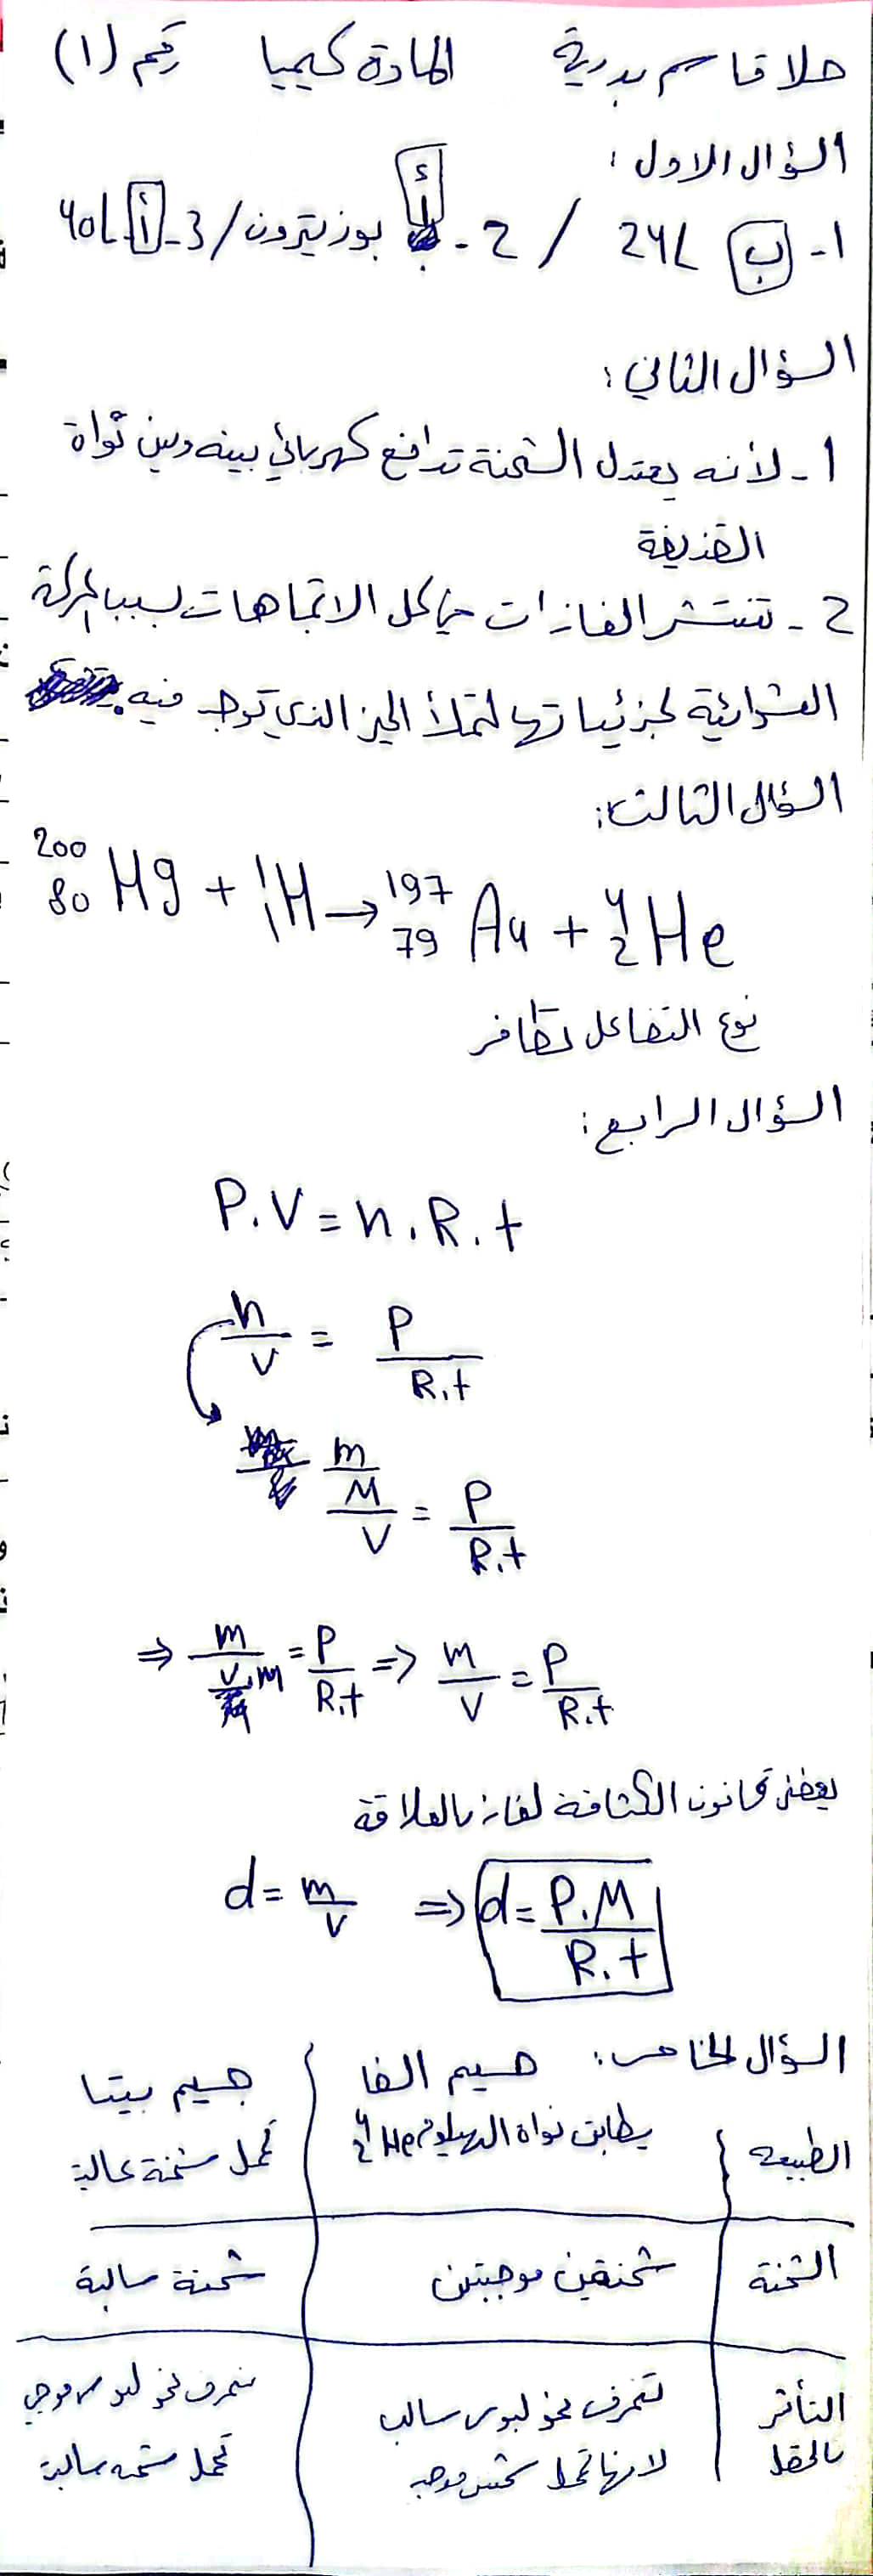 حلا قاسم بدرية المادة كيميا رقم (1)
السؤال الاول :
1- ب 24L / 2- أ بوزيترون / 3- أ 40L
السؤال الثاني :
1- لأنه يعتدل الشحنة تدافع كهربائي بينه وبين نواة
القذيفة
2- تنتشر الغازات في كل الاتجاهات بسبب الحركة
العشوائية لجزئياتها لتملأ الحيز الذي توجد فيه.
السؤال الثالث :
²⁰⁰₈₀Hg + ¹₁H → ¹⁹⁷₇₉Au + ⁴₂He
نوع التفاعل تطافر
السؤال الرابع :
P.V = n.R.t
n/V = P/R.t
m/M/V = P/R.t
⇒ m/V.M = P/R.t => m/V = P/R.t
يعطى قانون الكثافة لغاز بالعلاقة
d = m/V => d = P.M/R.t
السؤال الخامس : جسيم الفا جسيم بيتا
الطبيعة يطابق نواة الهيليوم ⁴₂He تحمل شحنة عالية
الشحنة شحنتين موجبتين شحنة سالبة
التأثر لتنحرف نحو لبوس سالب ينحرف نحو لبوس موجب
بالحقل لانها تحمل شحنتين موجبة تحمل شحنة سالبة